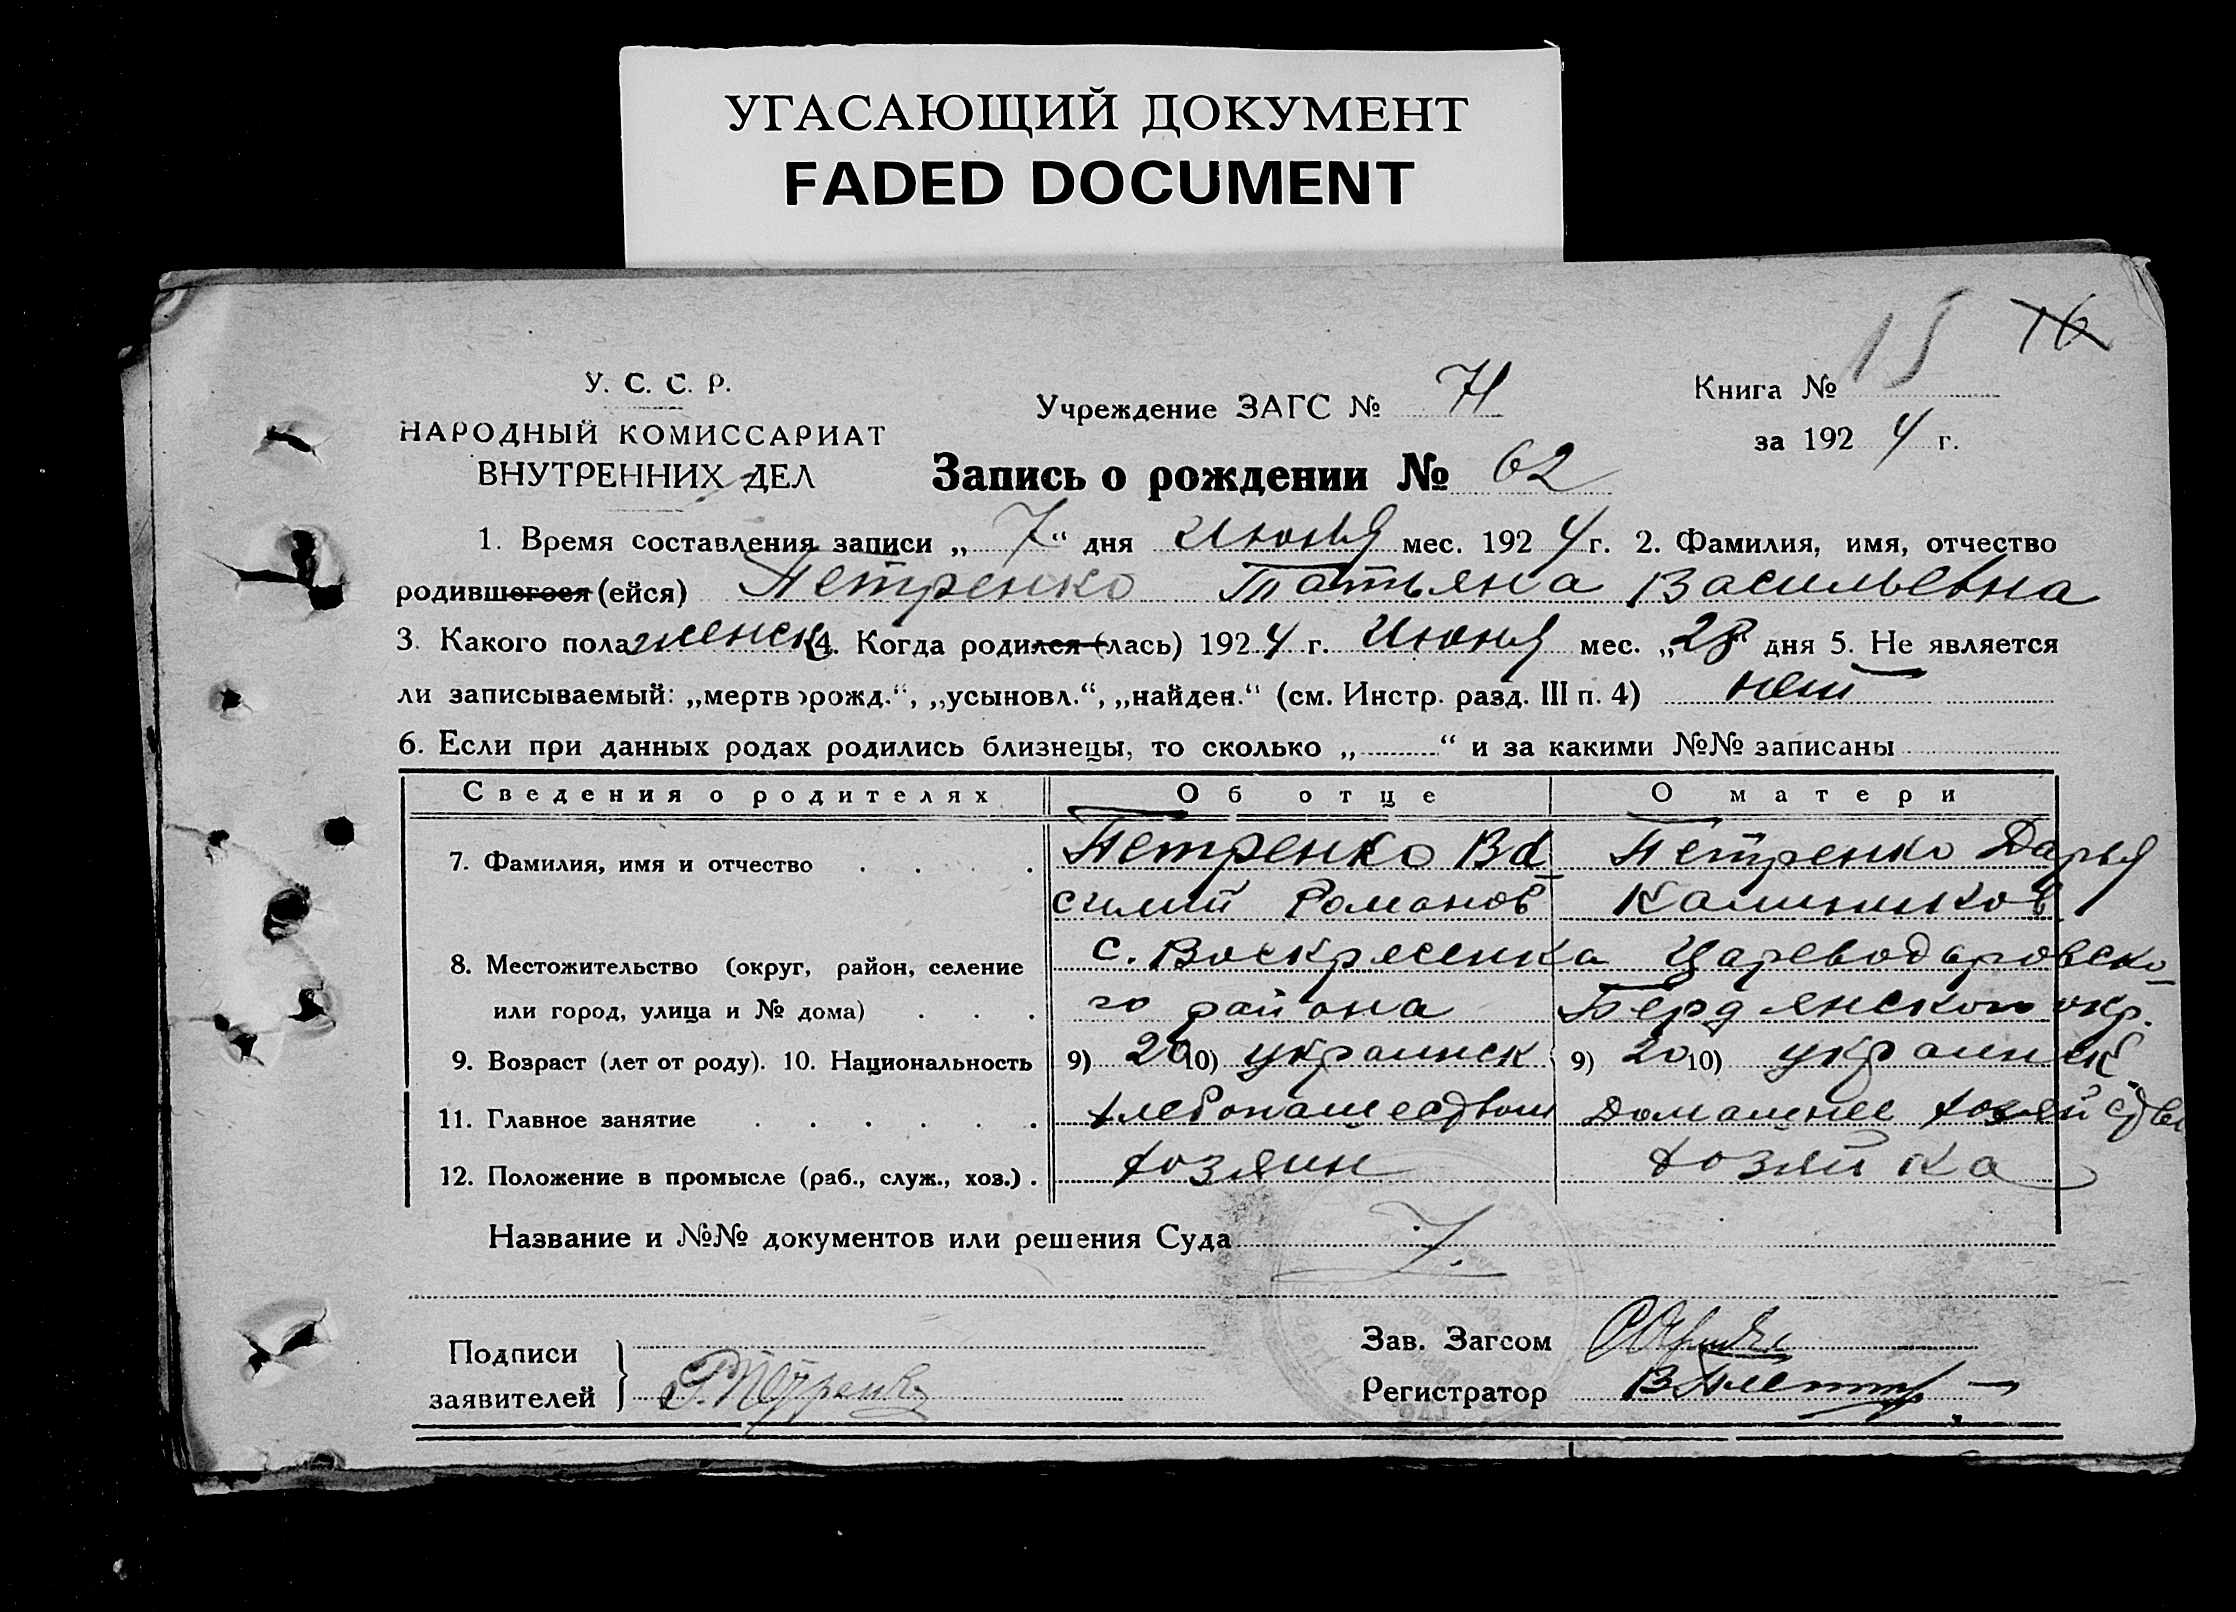 УГАСАЮЩИЙ ДОКУМЕНТ
FADED DOCUMENT
15 16
У. С. С. Р.
НАРОДНЫЙ КОМИССАРИАТ
ВНУТРЕННИХ ДЕЛ
Учреждение ЗАГС №
Книга №
за 1924 г.
Запись о рождении № 62
1. Время составления записи „7“ дня Июня мес. 1924 г. 2. Фамилия, имя, отчество
родившегося (ейся) Петренко Татьяна Васильевна
3. Какого пола женск 4. Когда родился (лась) 1924 г. Июня мес. „28“ дня 5. Не является
ли записываемый: „мертворожд.“, „усыновл.“, „найден.“ (см. Инстр. разд. III п. 4) нет
6. Если при данных родах родились близнецы, то сколько „ “ и за какими №№ записаны
Сведения о родителях Об отце О матери
7. Фамилия, имя и отчество . . . . Петренко Ва Петренко Дарья
силий Романов Калиников
8. Местожительство (округ, район, селение с. Воскресенка Цареводаровско-
или город, улица и № дома) . . . го района Бердянского окр.
9. Возраст (лет от роду). 10. Национальность 9) 20 10) украинск 9) 20 10) украинск
11. Главное занятие . . . . . . хлебопашеством Домашнее хозяйство
12. Положение в промысле (раб., служ., хоз.) . хозяин хозяйка
Название и №№ документов или решения Суда
Подписи
заявителей
Петренко
Зав. Загсом
Регистратор